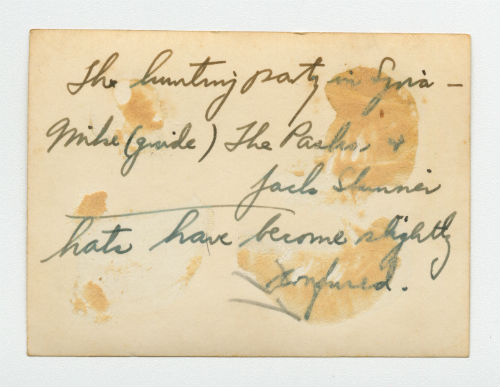 The hunting party in Syria –
Mike (guide) The Pasha &
Jack Skinner
hats have become slightly
confused.